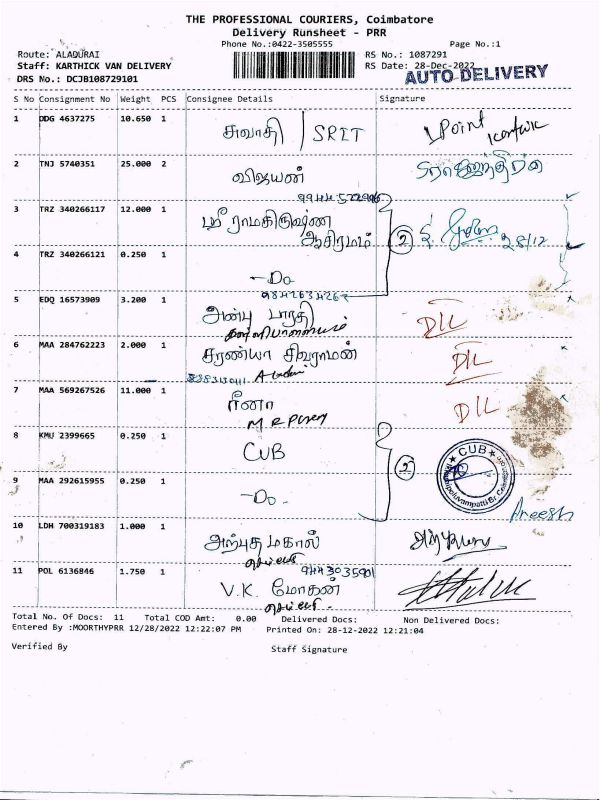 THE PROFESSIONAL COURIERS, Coimbatore
Delivery Runsheet - PRR
Phone No.:0422-3505555 Page No.:1
Route: ALADURAI RS No.: 1087291
Staff: KARTHICK VAN DELIVERY RS Date: 28-Dec-2022
DRS No.: DCJB108729101 AUTO DELIVERY
S No Consignment No Weight PCS Consignee Details Signature
1 DDG 4637275 10.650 1 சுவாதி / SRIT Point
2 TNJ 5740351 25.000 2 விஜயன்
3 TRZ 340266117 12.000 1 ஸ்ரீ ராமகிருஷ்ண
ஆசிரமம் 2 28/12
4 TRZ 340266121 0.250 1 -Do
5 EDQ 16573909 3.200 1 அன்பு பாரதி D/L
6 MAA 284762223 2.000 1 சரண்யா சிவராமன் D/L
7 MAA 569267526 11.000 1 ரீனா D/L
8 KMU 2399665 0.250 1 CUB 2 CUB
9 MAA 292615955 0.250 1 -Do. Areesh
10 LDH 700319183 1.000 1 அற்புத மகால்
11 POL 6136846 1.750 1 V.K. மோகன்
Total No. Of Docs: 11 Total COD Amt: 0.00 Delivered Docs: Non Delivered Docs:
Entered By :MOORTHYPRR 12/28/2022 12:22:07 PM Printed On: 28-12-2022 12:21:04
Verified By Staff Signature